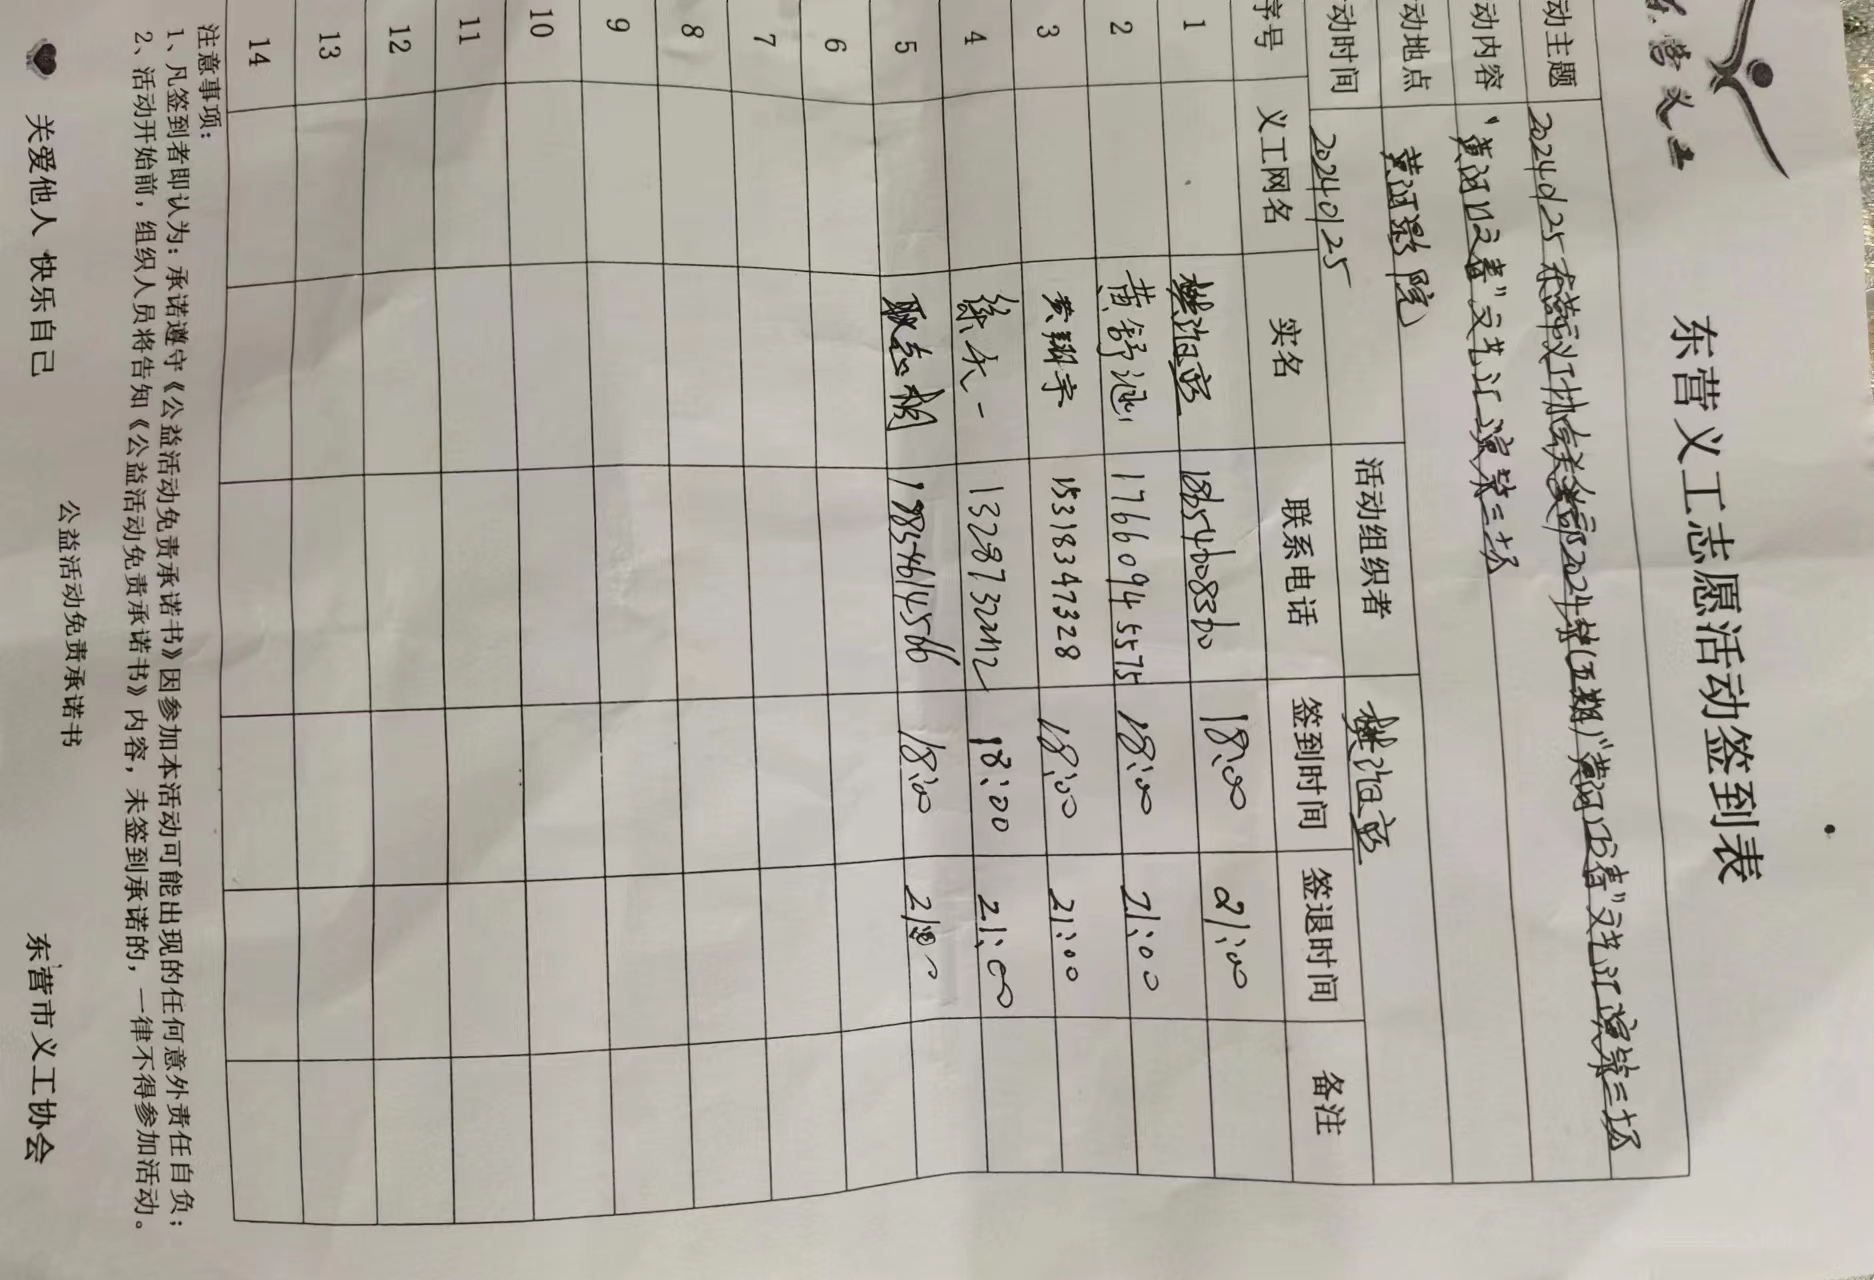 东营义工
东营义工志愿活动签到表
动主题 20240125东营市义工协会关爱部2024年(五期)"黄河口春"文艺汇演第三场
动内容 "黄河口之春"文艺汇演第三场
动地点 黄河影院 活动组织者
动时间 20240125
序号 义工网名 实名 联系电话 签到时间 签退时间 备注
1 18654600830 18:00 21:00
2 黄舒涵 17660945575 18:00 21:00
3 黄翔宇 15318347328 18:00 21:00
4 徐大一 18:00 21:00
5 耿志朝 19854614566 18:00
6
7
8
9
10
11
12
13
14
注意事项:
1、凡签到者即认为:承诺遵守《公益活动免责承诺书》因参加本活动可能出现的任何意外责任自负;
2、活动开始前,组织人员将告知《公益活动免责承诺书》内容,未签到承诺的,一律不得参加活动。
公益活动免责承诺书
关爱他人 快乐自己 东营市义工协会